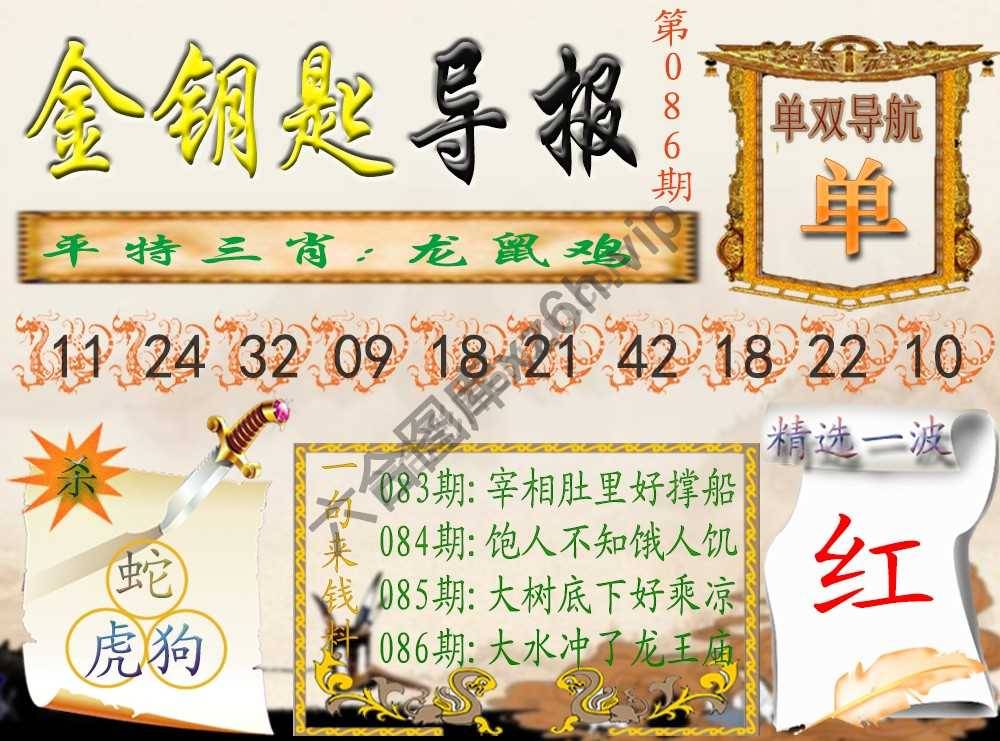 金钥匙导报
第086期
单双导航
单
平特三肖:龙鼠鸡
11 24 32 09 18 21 42 18 22 10
杀
蛇
虎狗
一句来钱料
083期:宰相肚里好撑船
084期:饱人不知饿人饥
085期:大树底下好乘凉
086期:大水冲了龙王庙
精选一波
红